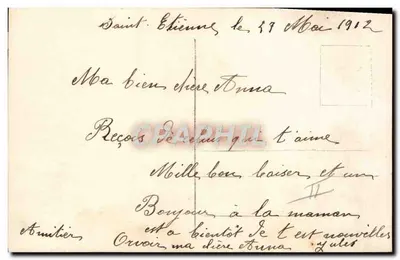 Saint. Etienne, le 29 Mai 1912
Ma bien chère Anna
Reçois de celui qui t'aime
Mille bon baiser et un
II
Bonjour à la maman
Amitier est a bientôt de t est nouvelles
Orvoir ma chère Anna Jules